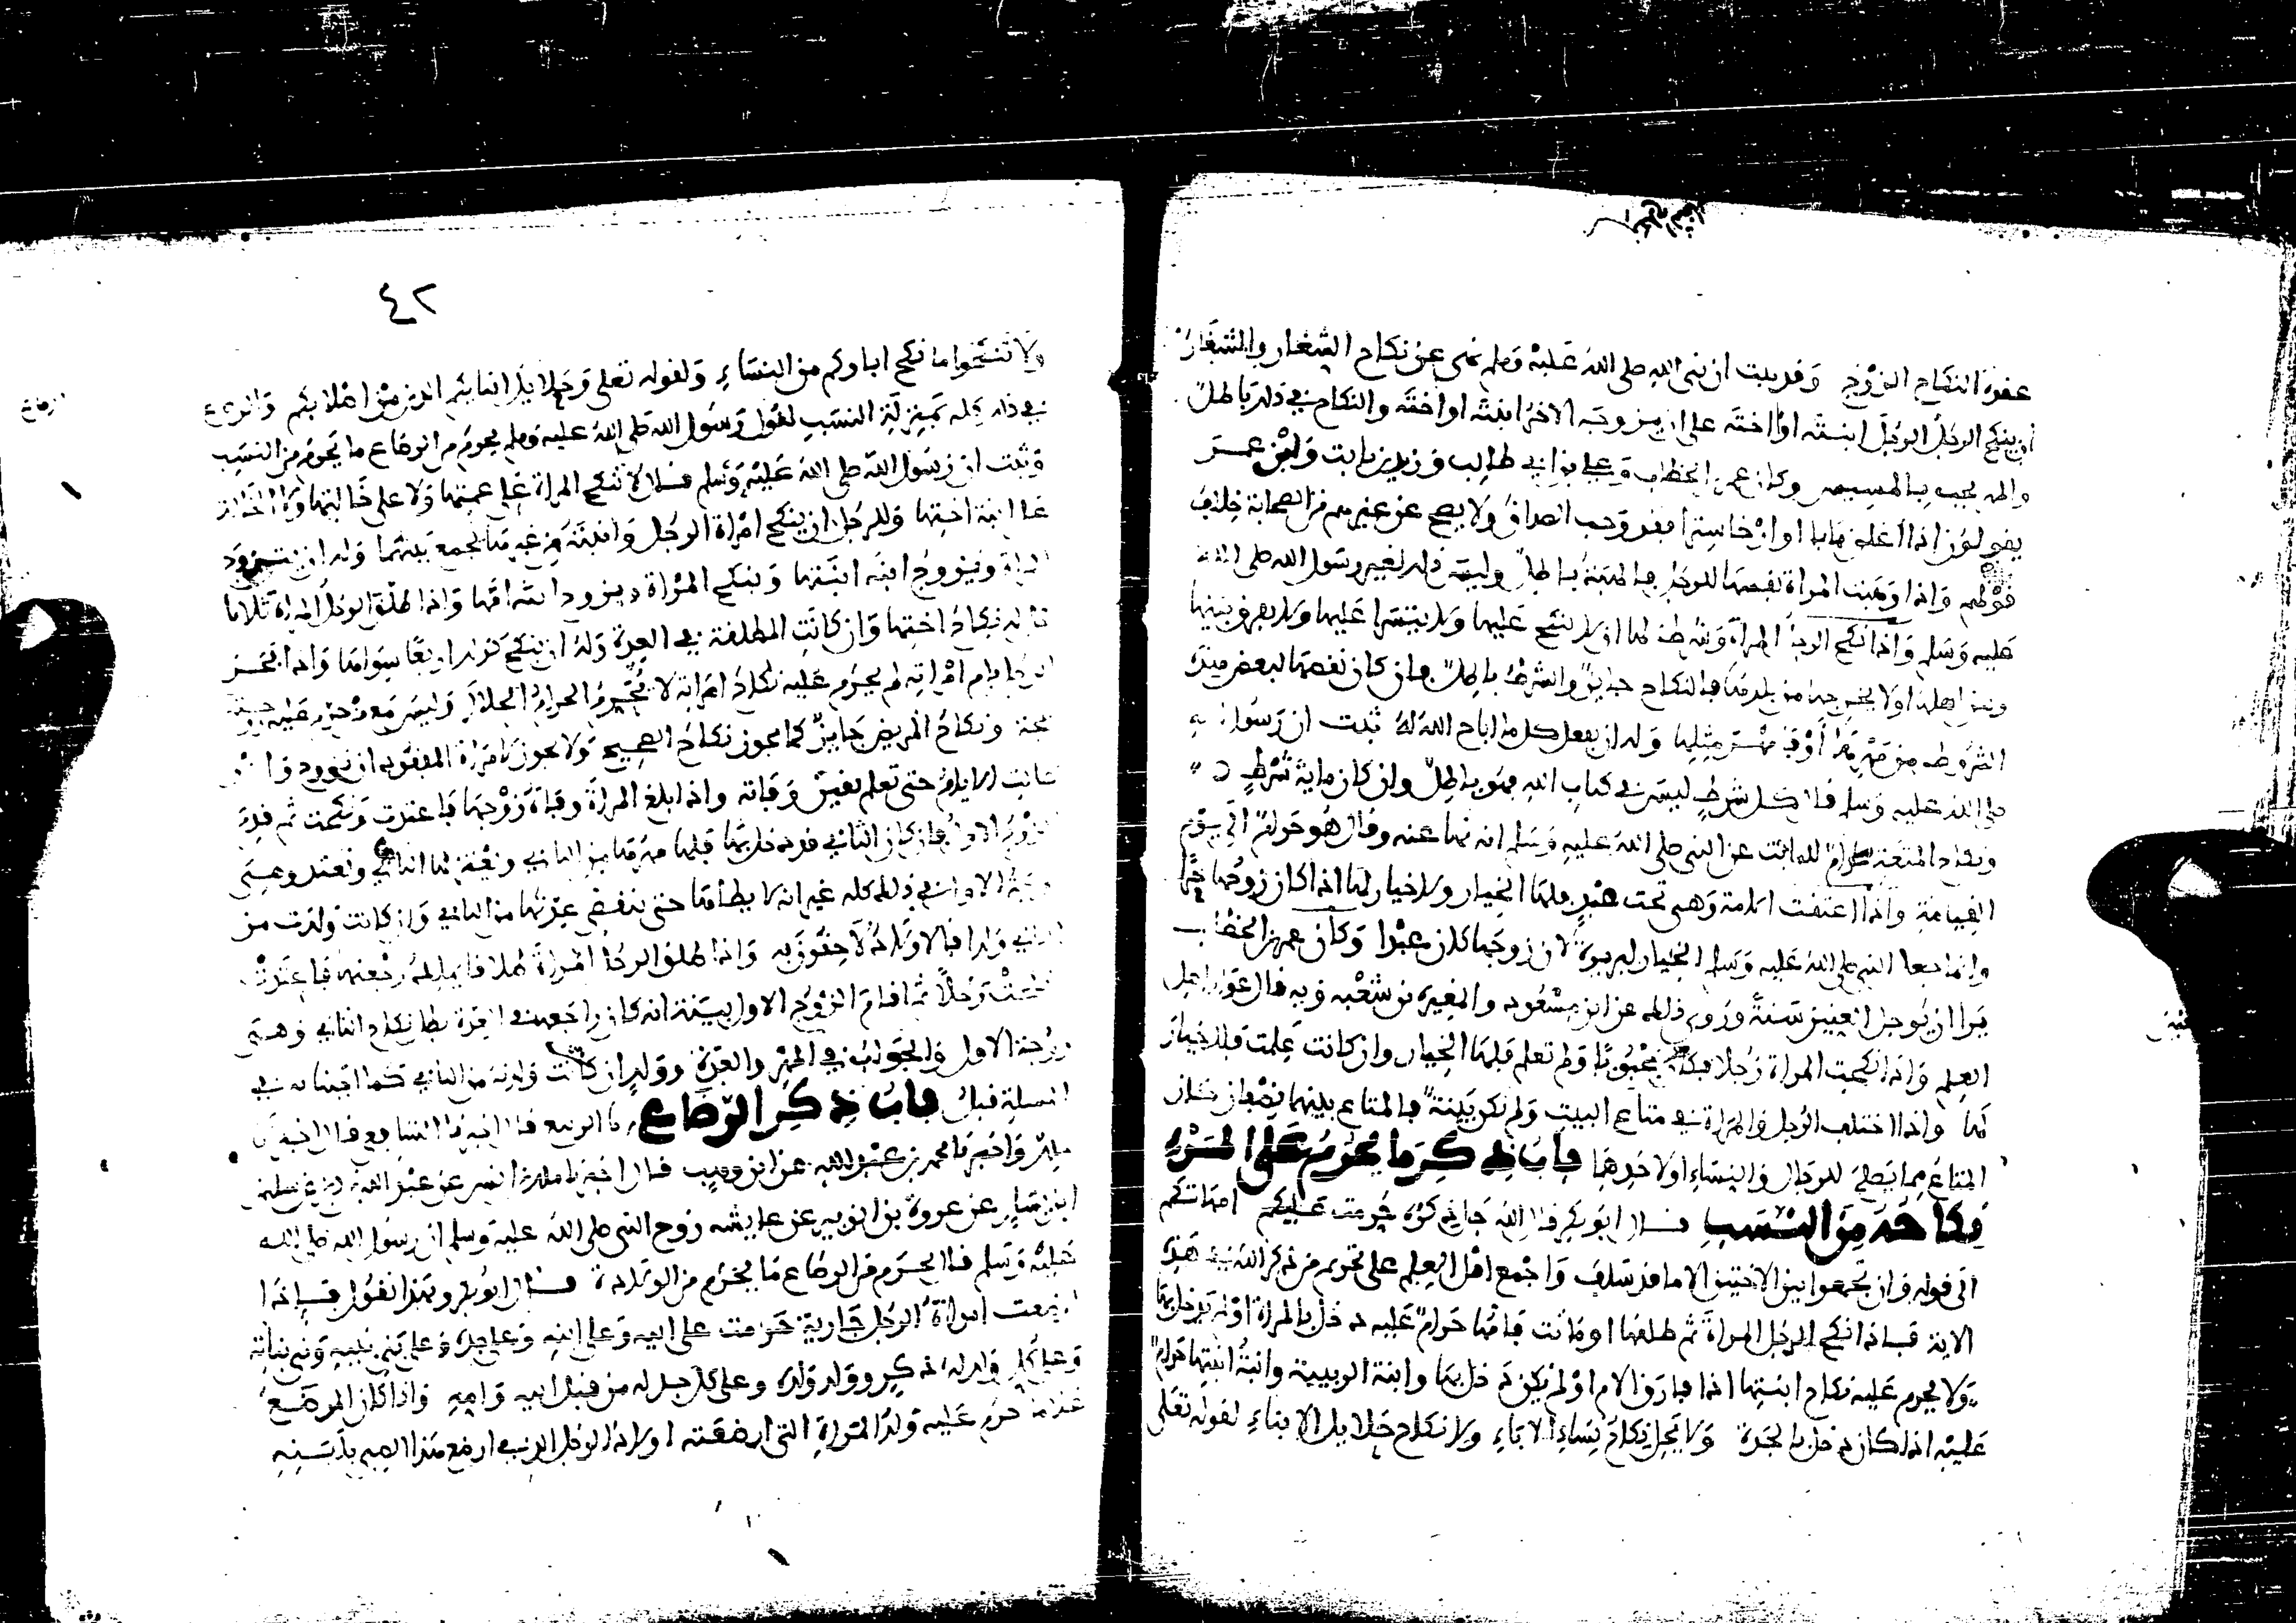 عقدة النكاح الزوج وقد ثبت ان نبي الله صلى الله عليه وسلم نهى عن نكاح الشغار والشغار
ان ينكح الرجل الرجل ابنته او اخته على ان يزوجه الاخر ابنته او اخته والنكاح في ذلك باطل
والمهر يجب بالمسيس وكان عمر بن الخطاب وعلي بن ابي طالب وزيد بن ثابت وابن عمر
يقولون اذا اغلق بابا او ارخا سترا فقد وجب الصداق ولا يصح عن غيرهم من الصحابة خلاف
قولهم واذا وهبت المراة نفسها للرجل فالهبة باطل وليس ذلك لغير رسول الله صلى الله
عليه وسلم واذا نكح الرجل المراة وشرطت لها ان لا ينكح عليها ولا يتسرا عليها ولا يفرق بينها
وبين اهلها او لا يخرجها من بلدها فالنكاح جايز والشرط باطل وان كان نقصها لبعض هذه
الشروط من مهرها اوفيا مهر مثلها وله ان يفعل كل ما اباح الله له ثبت ان رسول الله
صلى الله عليه وسلم قال كل شرط ليس في كتاب الله فهو باطل وان كان ماية شرط
ونكاح المتعة حرام للثابت عن النبي صلى الله عليه وسلم انه نها عنه وقال هو حرام الى يوم
القيامة واذا اعتقت الامة وهي تحت عبد فلها الخيار ولا خيار لها اذا كان زوجها حرا
وانما جعل النبي صلى الله عليه وسلم الخيار لبريرة لان زوجها كان عبدا وكان عمر بن الخطاب
يرا ان يوجل العنين سنة وروي ذلك عن ابن مسعود والمغيرة بن شعبة وبه قال عوام اهل
العلم واذا نكحت المراة رجلا فكان مجبوبا ولم تعلم فلها الخيار وان كانت علمت فلا خيار
لها واذا اختلف الرجل والمراة في متاع البيت ولم تكن بينة فالمتاع بينهما نصفان كان
المتاع مما يصلح للرجال والنساء او لاحدهما باب ذكر ما يحرم على المرء
نكاحه من النسب قال ابو بكر قال الله جل ذكره حرمت عليكم امهاتكم
الى قوله وان تجمعوا بين الاختين الا ما قد سلف واجمع اهل العلم على تحريم من ذكر الله في هذه
الاية فاذا نكح الرجل المراة ثم طلقها او ماتت فامها حرام عليه دخل بالمراة او لم يدخل بها
ولا يحرم عليه نكاح ابنتها اذا فارق الام او لم يكن دخل بها وابنة الربيبة وابنة ابنتها حرام
عليه اذا كان دخل بالجدة ولا يحل نكاح نساء الاباء ولا نكاح حلايل الابناء لقوله تعلى
٤٢
ولا تنكحوا ما نكح اباوكم من النساء ولقوله تعلى وحلايل ابنايكم الذين من اصلابكم والرضاع
في ذلك كله بمنزلة النسب لقول رسول الله صلى الله عليه وسلم يحرم من الرضاع ما يحرم من النسب
وثبت ان رسول الله صلى الله عليه وسلم قال لا تنكح المراة على عمتها ولا على خالتها
على ابنة اختها وللرجل ان ينكح امراة الرجل وابنته من غيرها يجمع بينهما وله ان يتزوج
المراة ويزوج ابنه ابنتها وينكح المراة ويزوج ابنه امها واذا طلق الرجل المراة ثلاثا
فله نكاح اختها وان كانت المطلقة في العدة وله ان ينكح اربعا سواها واذا فجر
الرجل بام امراته لم يحرم عليه نكاح امراته لا يحرم الحرام الحلال وليس مع من حرم عليه
حجة ونكاح المريض جايز كما يجوز نكاح الصحيح ولا يجوز لامراة المفقود ان تزوج وان
غابت الايام حتى تعلم بيقين وفاته واذا بلغ المراة وفاة زوجها فاعتدت ونكحت ثم قدم
الزوج الاول فان كان الثاني قد دخل بها فلها مهرها من الثاني وتعتد وهي
زوجة الاول في ذلك كله غير انه لا يطاها حتى تنقضي عدتها من الثاني وان كانت ولدت من
الثاني ولدا فالاولاد لاحقون به واذا طلق الرجل المراة طلاقا يملك رجعتها فاعتدت
ونكحت رجلا ثم اقام الزوج الاول بينة انه كان راجعها في العدة بطل نكاح الثاني وهي
زوجة الاول والجواب في المهر والعدة وولد ان كانت ولدته من الثاني كما اجبنا به في
المسلة قبل باب ذكر الرضاع نا الربيع قال اخبرنا الشافعي قال اخبرنا
ملك واخبرنا محمد بن عبد الله عن ابن وهب قال اخبرنا ملك بن انس عن عبد الله بن دينار عن سليمن
ابن يسار عن عروة بن الزبير عن عايشه زوج النبي صلى الله عليه وسلم ان رسول الله صلى الله
عليه وسلم قال يحرم من الرضاع ما يحرم من الولادة قال ابو بكر وبهذا نقول فاذا
ارضعت امراة الرجل جارية حرمت على ابيه وعلى ابنه وعلى جده وعلى بني بنيه وبني بناته
وعلى كل ولد له ذكر وولد ولده وعلى كل جد له من قبل ابيه وامه واذا كان المرضع
غلاما حرم عليه ولد المراة التي ارضعته واولاد الرجل الذي ارضع هذا الصبي بلبنه